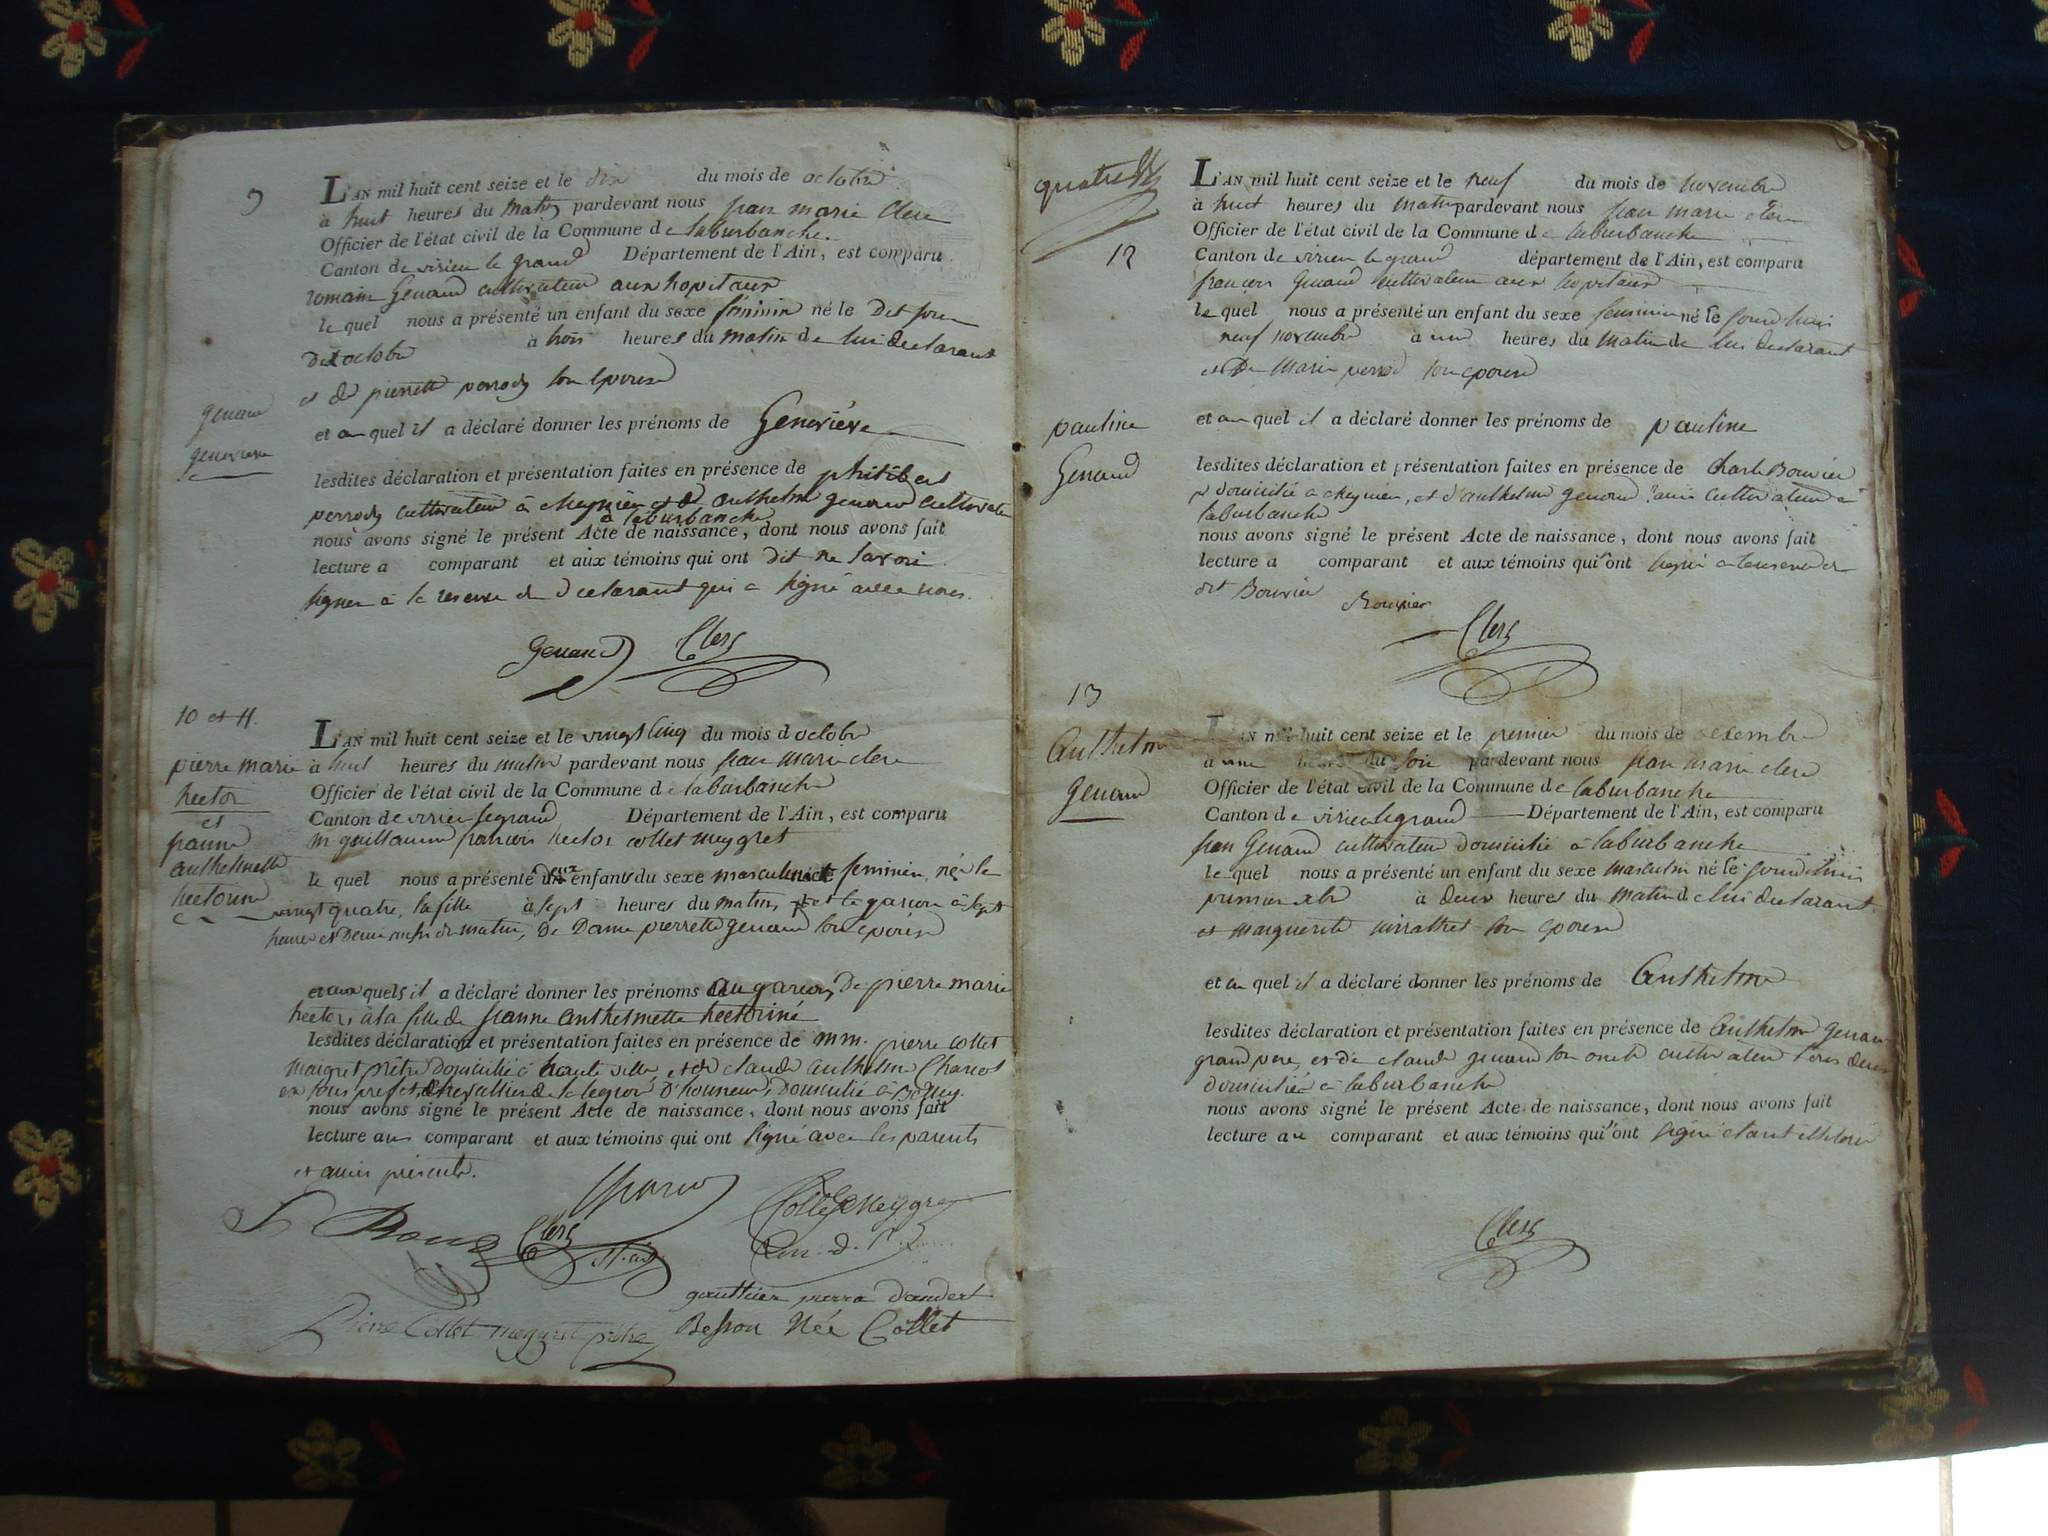 9
L'AN mil huit cent seize et le dix du mois de octobre
à huit heures du matin pardevant nous jean marie Clerc
Officier de l'état civil de la Commune de laburbanche.
Canton de virieu le grand Département de l'Ain, est comparu
romain Genaud cultivateur aux hopitaux
le quel nous a présenté un enfant du sexe féminin né le dit jour
dix octobre à trois heures du matin de lui declarant
et de pierrette perrody son epouse
genaud
genevieve
et au quel il a déclaré donner les prénoms de Genevieve
lesdites déclaration et présentation faites en présence de philibert
perrody cultivateur à cheynieu et d anthelme genaud cultivateur
à laburbanche
nous avons signé le présent Acte de naissance, dont nous avons fait
lecture a comparant et aux témoins qui ont dit ne savoir
signer à la reserve du declarant qui a signé avec nous.
Genaud Clerc
10 et 11.
pierre marie
hector
et
jeanne
anthelmette
hectorine
L'AN mil huit cent seize et le vingt cinq du mois d octobre
à huit heures du matin pardevant nous jean marie clerc
Officier de l'état civil de la Commune de laburbanche
Canton de virieu legrand Département de l'Ain, est comparu
m guillaume françois hector collet meygret
le quel nous a présenté deux enfants du sexe masculin et feminin, nés le
vingt quatre, la fille à sept heures du matin, et le garcon à sept
heures et demie du matin, de Dame pierrette genaud son epouse
et aux quels il a déclaré donner les prénoms au garcon, De pierre marie
hector, à la fille de jeanne anthelmette hectorine
lesdites déclaration et présentation faites en présence de mm. pierre collet
meigret prêtre domicilié à haute ville, et de claude anthelme
sous prefet, chevallier de la legion d'honneur, Domicilié à Belley.
nous avons signé le présent Acte de naissance, dont nous avons fait
lecture aux comparant et aux témoins qui ont signé avec les parents
et amis présents.
Collet Meygret
Clerc
gauthier d'andert
Pierre Collet meygret prêtre Besson Née Collet
quatre
12
L'AN mil huit cent seize et le neuf du mois de novembre
à huit heures du matin pardevant nous jean marie clerc
Officier de l'état civil de la Commune de laburbanche
Canton de virieu le grand département de l'Ain, est comparu
françois Genaud cultivateur aux hopitaux
le quel nous a présenté un enfant du sexe feminin né le jourd'huis
neuf novembre à une heures du matin de lui declarant
et De Marie perrod son epouse
pauline
Genaud
et au quel il a déclaré donner les prénoms de pauline
lesdites déclaration et présentation faites en présence de Charle Bouvier
domicilié a cheynieu, et d'anthelme genaud cultivateur à
laburbanche
nous avons signé le présent Acte de naissance, dont nous avons fait
lecture a comparant et aux témoins qui ont signé a la reserve du
dit Bouvier
Bouvier Clerc
13
Anthelme
genaud
L'AN mil huit cent seize et le premier du mois de decembre
à une heures du soir pardevant nous jean marie clerc
Officier de l'état civil de la Commune de laburbanche
Canton de virieu legrand Département de l'Ain, est comparu
jean Genaud cultivateur domicilié à laburbanche
le quel nous a présenté un enfant du sexe masculin né le jourd'huis
premier xbre à deux heures du matin de lui declarant
et marguerite son epouse
et au quel il a déclaré donner les prénoms de Anthelme
lesdites déclaration et présentation faites en présence de anthelme genaud
grand pere, et de claude genaud son oncle cultivateur tous deux
domiciliés à laburbanche
nous avons signé le présent Acte de naissance, dont nous avons fait
lecture au comparant et aux témoins qui ont signé etant illetrés
Clerc